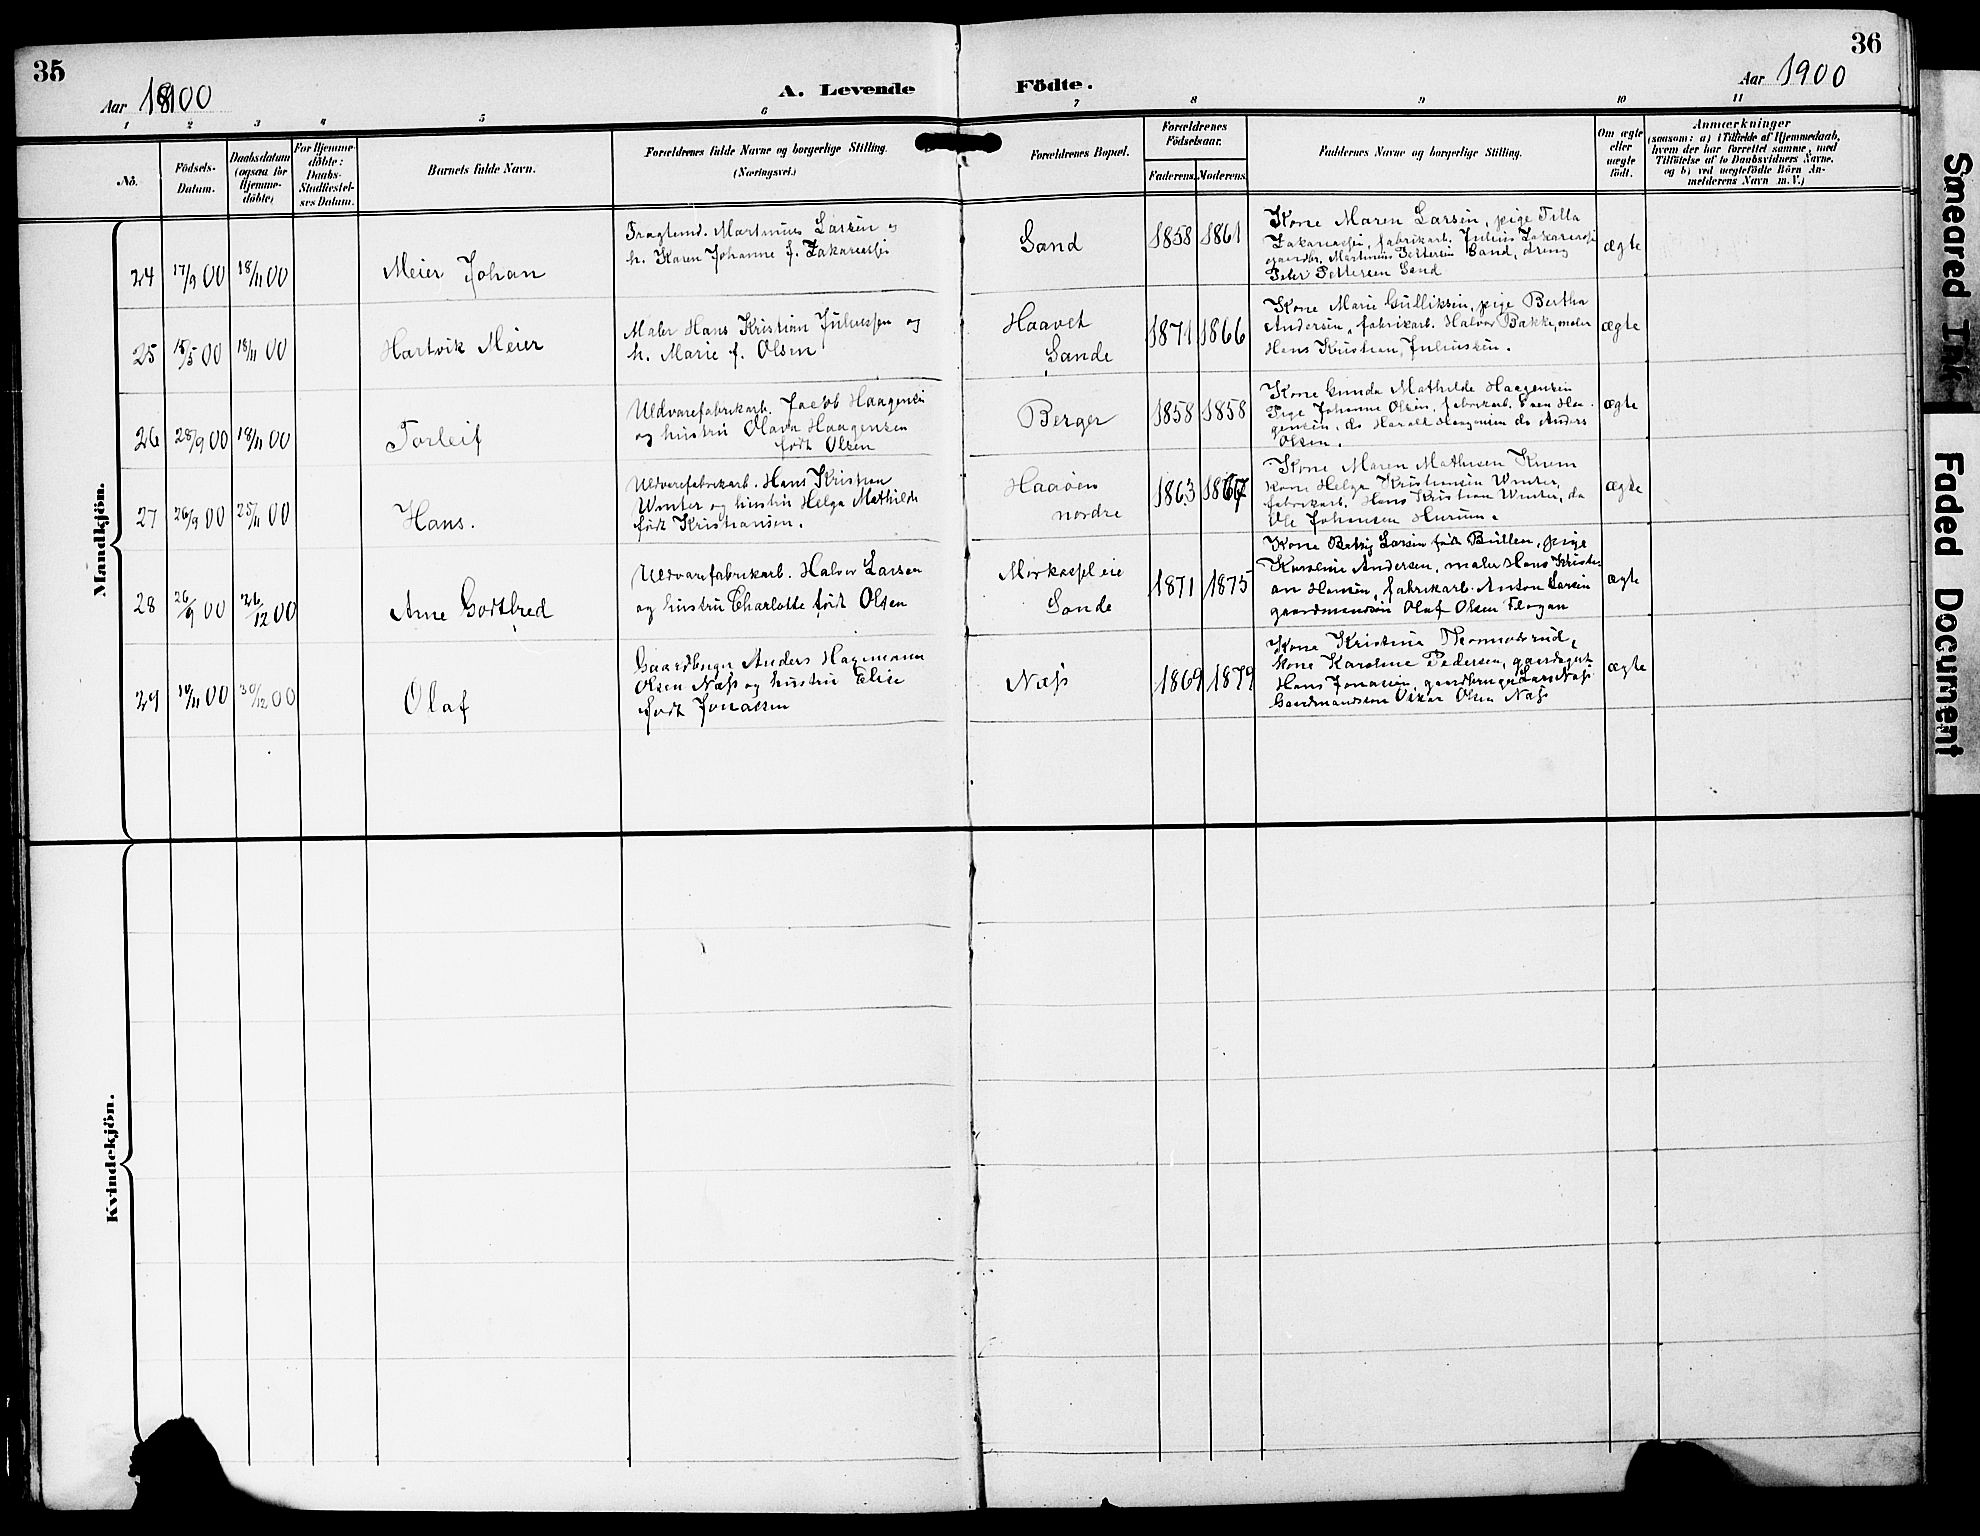 35
36
Aar 1900
A. Levende
Födte.
Aar 1900
1 2 3 4 5 6 7 8 9 10 11
No.
Födsels-
Datum.
Daabsdatum
(ogsaa for
Hjemme-
döbte)
For Hjemme-
döbte:
Daabs-
Stadfæstel-
ses Datum.
Barnets fulde Navn.
Forældrenes fulde Navne og borgerlige Stilling.
(Næringsvei.)
Forældrenes Bopæl.
Forældrenes
Födselsaar.
Faderens. Moderens.
Faddernes Navne og borgerlige Stilling.
Om ægte
eller
uægte
födt.
Anmærkninger
(saasom: a) i Tilfælde af Hjemmedaab,
hvem der har forrettet samme, med
Tilföielse af to Daabsvidners Navne.
og b) ved uægtefödte Börn An-
melderens Navn m. V.)
Mandkjön.
24
17/9 00
18/11 00
Meier Johan
Fragtemd. Martinius Larsen og
h. Karen Johanne f. Zakariassen
Sand
1858
1861
Kone Maren Larsen, pige Tilla
Zakariassen, fabrikarb. Julius Zakariassen
gaardbr. Martinius Pettersen Sand, dreng
Peter Pettersen Sand
ægte
25
18/5 00
18/11 00
Hartvik Meier
Maler Hans Kristian Juliussen og
h. Marie f. Olsen
Haavet
Sande
1871
1866
Kone Marie Gulliksen, pige Bertha
Andersen, fabrikarb. Halvor Bakke, maler
Hans Kristian Juliussen.
ægte
26
28/9 00
18/11 00
Torleif
Uldvarefabrikarb. Jacob Haagensen
og hustru Olava Haagensen
født Olsen
Berger
1858
1858
Kone Gunda Mathilde Haagensen
Pige Johanne Olsen, fabrikarb. Even Haa-
gensen, do Harald Haagensen do Anders
Olsen.
ægte
27
26/9 00
25/11 00
Hans.
Uldvarefabrikarb. Hans Kristian
Winter og hustru Helga Mathilde
født Kristiansen.
Haaøen
nordre
1863
1867
Kone Maren Mathisen Knem
Kone Helga Kristiansen Winter,
fabrikarb. Hans Kristian Winter, do
Ole Johansen Hurum.
ægte
28
26/9 00
26/12 00
Arne Godtfred
Uldvarefabrikarb. Halvor Larsen
og hustru Charlotte født Olsen
Sande
1871
1875
Kone Betsy Larsen født Bullen, pige
Karoline Andersen, maler Hans Kristi-
an Hansen, fabrikarb. Anton Larsen
gaardmandssøn Olaf Olsen
ægte
29
10/11 00
30/12 00
Olaf
Gaardbruger Anders Hagemann
Olsen Næss og hustru Elise
født Jonassen
Næss
1869
1879
Kone Kristine
Kone Karoline Pedersen,
Hans Jonassen, gaardbruger Lars Næss
Gaardmandssøn Oskar Olsen Næss
ægte
Kvindekjön.
Smeared Ink
Faded Document